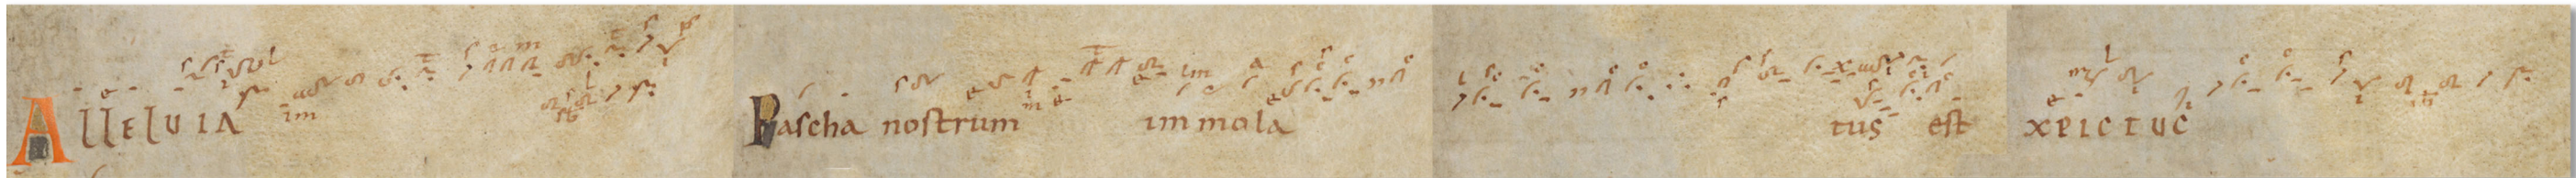 Alleluia Pascha nostrum im mola tus est xpictuc